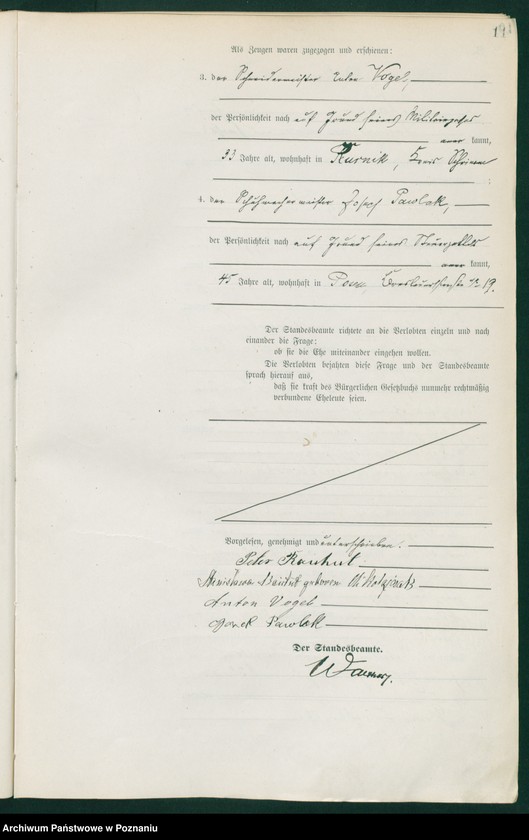 Als Zeugen waren zugezogen und erschienen:
3. der Schneidermeister Vogel,
der Persönlichkeit nach auf Grund seines Militärpasses
kannt,
33 Jahre alt, wohnhaft in Kurnik, Kreis Schrimm
;
4. der Schuhmachermeister Josef Pawlak,
der Persönlichkeit nach auf Grund seines Steuerzettels
kannt,
45 Jahre alt, wohnhaft in Posen, Breslauerstraße No 19.
Der Standesbeamte richtete an die Verlobten einzeln und nach
einander die Frage:
ob sie die Ehe miteinander eingehen wollen.
Die Verlobten bejahten diese Frage und der Standesbeamte
sprach hierauf aus,
daß sie kraft des Bürgerlichen Gesetzbuchs nunmehr rechtmäßig
verbundene Eheleute seien.
Vorgelesen, genehmigt und unterschrieben:
Peter
geborene
Anton Vogel
Pawlak
Der Standesbeamte.
Archiwum Państwowe w Poznaniu